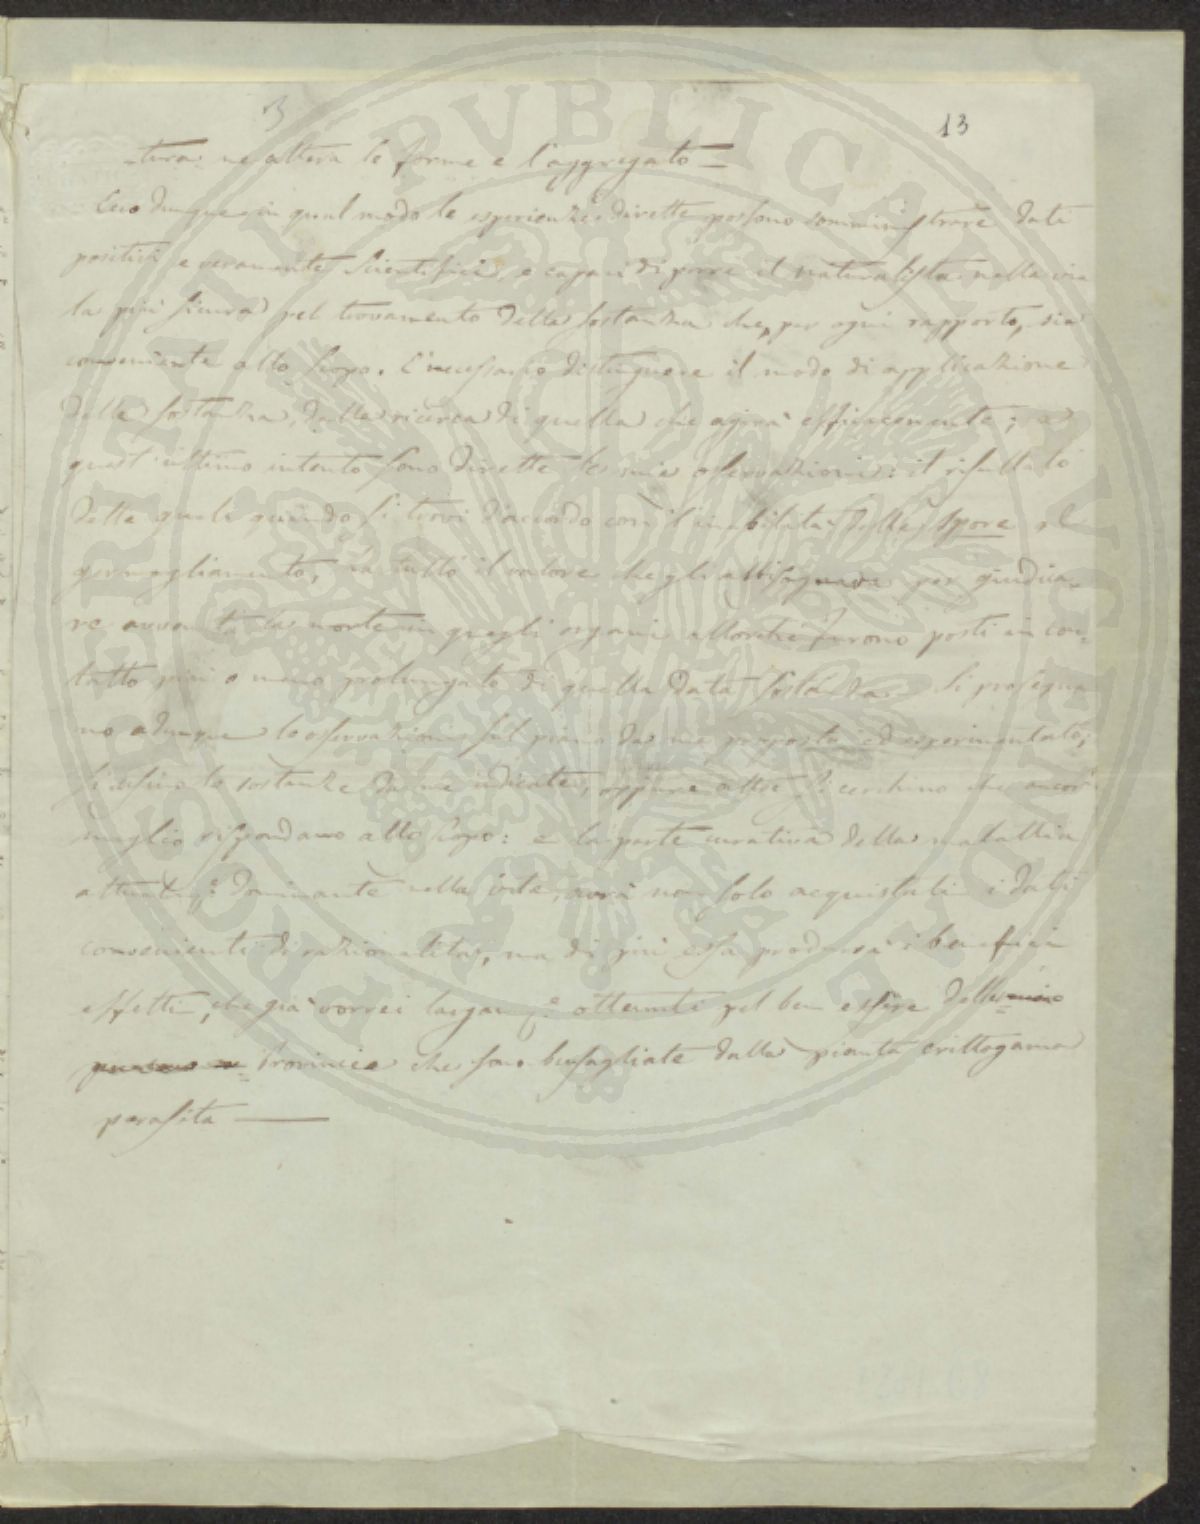 3
13
-tura ne altera le forme e l'aggregato —
Ecco dunque in qual modo le esperienze dirette possono somministrare dati
positivi e veramente scientifici, e capaci di porre il naturalista nella via
la più sicura pel trovamento della sostanza che, per ogni rapporto, sia
conveniente allo scopo. È necessario distinguere il modo di applicazione
della sostanza, dalla ricerca di quella che agirà efficacemente; a
quest'ultimo intento sono dirette le mie osservazioni: il risultato
delle quali quando si trovi d'accordo con l'inabilità delle spore al
germogliamento, ha tutto il valore che gli abbisogna per giudica-
re avvenuta la morte in quegli organi allorchè furono posti in con-
tatto più o meno prolungato di quella data sostanza. Si prosegua
no adunque le osservazioni sul piano da me proposto ed esperimentato;
si usino le sostanze da me indicate, oppure altre si cerchino che ancor
meglio rispondano allo scopo: e la parte curativa della malattia
dominante nella vite, avrà non solo acquistati i dati
convenienti di razionalità, ma di più essa produrrà i benefici
effetti, che già vorrei ottenuti pel ben essere delle
Provincie che sono bersagliate dalla pianta crittogama
parasita —